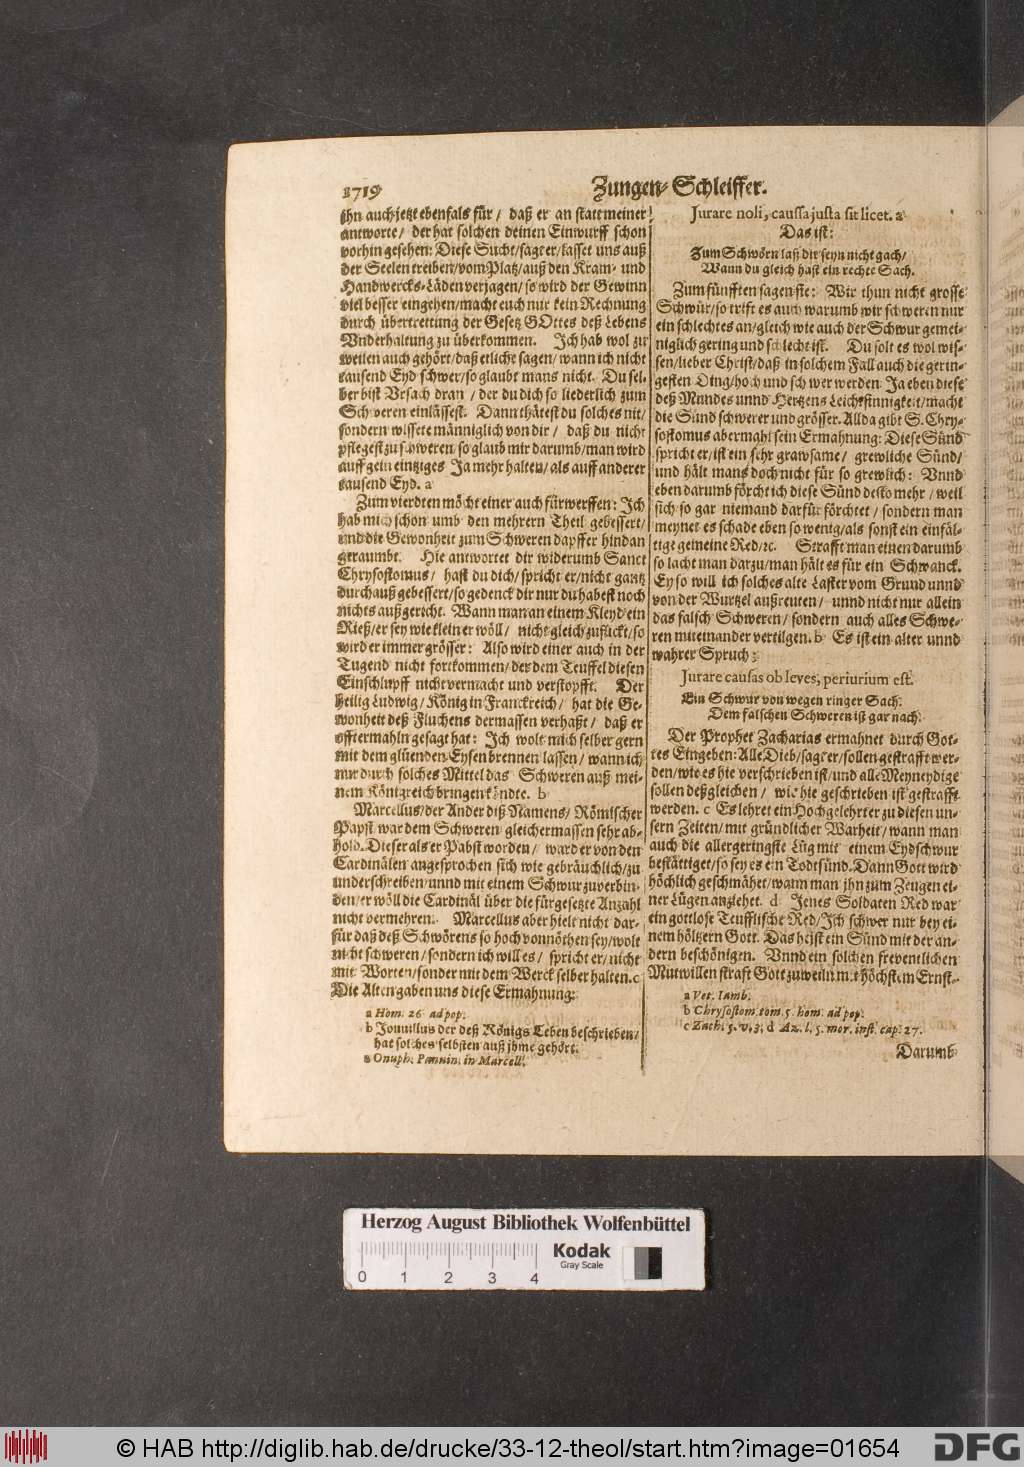 1719
Zungen-Schleiffer.
ihn auch jetzt ebenfals für / daß er an statt meiner
antworte / der hat solchen deinen Einwurff schon
vorhin gesehen: Diese Sucht / sagt er / lasset uns auß
der Seelen treiben / vom Platz / auß den Kram- und
Handwercks-Läden verjagen / so wird der Gewinn
viel besser eingehen / macht euch nur kein Rechnung
durch übertrettung der Gesetz GOttes deß Lebens
Vnderhaltung zu überkommen. Ich hab wol zu
weilen auch gehört / daß etliche sagen / wann ich nicht
tausend Eyd schwer / so glaubt mans nicht. Du sel-
ber bist Vrsach dran / der du dich so liederlich zum
Schweren einlässest. Dann thätest du solches nit /
sondern wissete männiglich von dir / daß du nicht
pflegest zu schweren / so glaub mir darumb / man wird
auff gein eintziges Ja mehr halten / als auff anderer
tausend Eyd. a
Zum vierdten möcht einer auch fürwerffen: Ich
hab mich schon umb den mehrern Theil gebessert /
und die Gewonheit zum Schweren dapffer hindan
geraumbt. Hie antwortet dir widerumb Sanct
Chrysostomus / hast du dich / spricht er / nicht gantz
durchauß gebessert / so gedenck dir nur du habest noch
nichts außgericht. Wann man an einem Kleyd ein
Rieß / er sey wie klein er wöll / nicht gleich zuflickt / so
wird er immer grösser: Also wird einer auch in der
Tugend nicht fortkommen / der dem Teuffel diesen
Einschlupff nicht vermacht und verstopfft. Der
heilig Ludwig / König in Franckreich / hat die Ge-
wonheit deß Fluchens dermassen verhaßt / daß er
offtermahln gesagt hat: Ich wolt mich selber gern
mit dem glüenden Eysen brennen lassen / wann ich
nur durch solches Mittel das Schweren auß mei-
nem Königreich bringen köndte. b
Marcellus / der Ander diß Namens / Römischer
Papst war dem Schweren gleichermassen sehr ab-
hold. Dieser als er Pabst worden / ward er von den
Cardinälen angesprochen sich wie gebräuchlich / zu
underschreiben / unnd mit einem Schwur zuverbin-
den / er wöll die Cardinäl über die fürgesetzte Anzahl
nicht vermehren. Marcellus aber hielt nicht dar-
für daß deß Schwörens so hoch vonnöthen sey / wolt
nicht schweren / sondern ich will es / spricht er / nicht
mit Worten / sonder mit dem Werck selber halten. c
Die Alten gaben uns diese Ermahnung:
a Hom. 26 ad pop.
b Jonvillus der deß Königs Leben beschrieben /
hat solches selbsten auß jhme gehört.
a Onuph. Panuin. in Marcell.
Jurare noli, caussa justa sit licet. a
Das ist:
Zum Schwörn laß dir seyn nicht gach /
Wann du gleich hast ein rechte Sach.
Zum fünfften sagen sie: Wir thun nicht grosse
Schwür / so trift es auch warumb wir schweren nur
ein schlechtes an / gleich wie auch der Schwur gemei-
niglich gering und schlecht ist. Du solt es wol wis-
sen / lieber Christ / daß in solchem Fall auch die gerin-
gesten Ding / hoch und schwer werden. Ja eben diese
deß Mundes unnd Hertzens Leichtsinnigkeit / macht
die Sünd schwerer und grösser. Allda gibt S. Chry-
sostomus abermahl sein Ermahnung: Diese Sünd
spricht er / ist ein sehr grawsame / grewliche Sünd /
und hält mans doch nicht für so grewlich: Vnnd
eben darumb förcht ich diese Sünd desto mehr / weil
sich so gar niemand darfür förchtet / sondern man
meynet es schade eben so wenig / als sonst ein einfäl-
tige gemeine Red / ꝛc. Strafft man einen darumb
so lacht man darzu / man hält es für ein Schwanck.
Ey so will ich solches alte Laster vom Grund unnd
von der Wurtzel außreuten / unnd nicht nur allein
das falsch Schweren / sondern auch alles Schwe-
ren miteinander vertilgen. b Es ist ein alter unnd
wahrer Spruch:
Jurare causas ob leves, periurium est.
Ein Schwur von wegen ringer Sach:
Dem falschen Schweren ist gar nach.
Der Prophet Zacharias ermahnet durch Got-
tes Eingeben: Alle Dieb / sagt er / sollen gestrafft wer-
den / wie es hie verschrieben ist / und alle Meyneydige
sollen deßgleichen / wie hie geschrieben ist gestrafft
werden. c Es lehret ein Hochgelehrter zu diesen un-
sern Zeiten / mit gründlicher Warheit / wann man
auch die allergeringste Lüg mit einem Eydschwur
bestättiget / so sey es ein Todtsünd. Dann Gott wird
höchlich geschmähet / wann man jhn zum Zeugen ei-
ner Lügen anziehet. d Jenes Soldaten Red war
ein gottlose Teufflische Red / Ich schwer nur bey ei-
nem höltzern Gott. Das heist ein Sünd mit der an-
dern beschönigen. Vnnd ein solchen freventlichen
Mutwillen straft Gott zuweiln mit höchstem Ernst.
a Vet. Iamb.
b Chrysostom. tom. 5. hom. ad pop.
c Zach. 5. v. 3. d Az. l. 5. mor. inst. cap. 27.
Darumb
Herzog August Bibliothek Wolfenbüttel
Kodak
Gray Scale
0 1 2 3 4
© HAB http://diglib.hab.de/drucke/33-12-theol/start.htm?image=01654
DFG